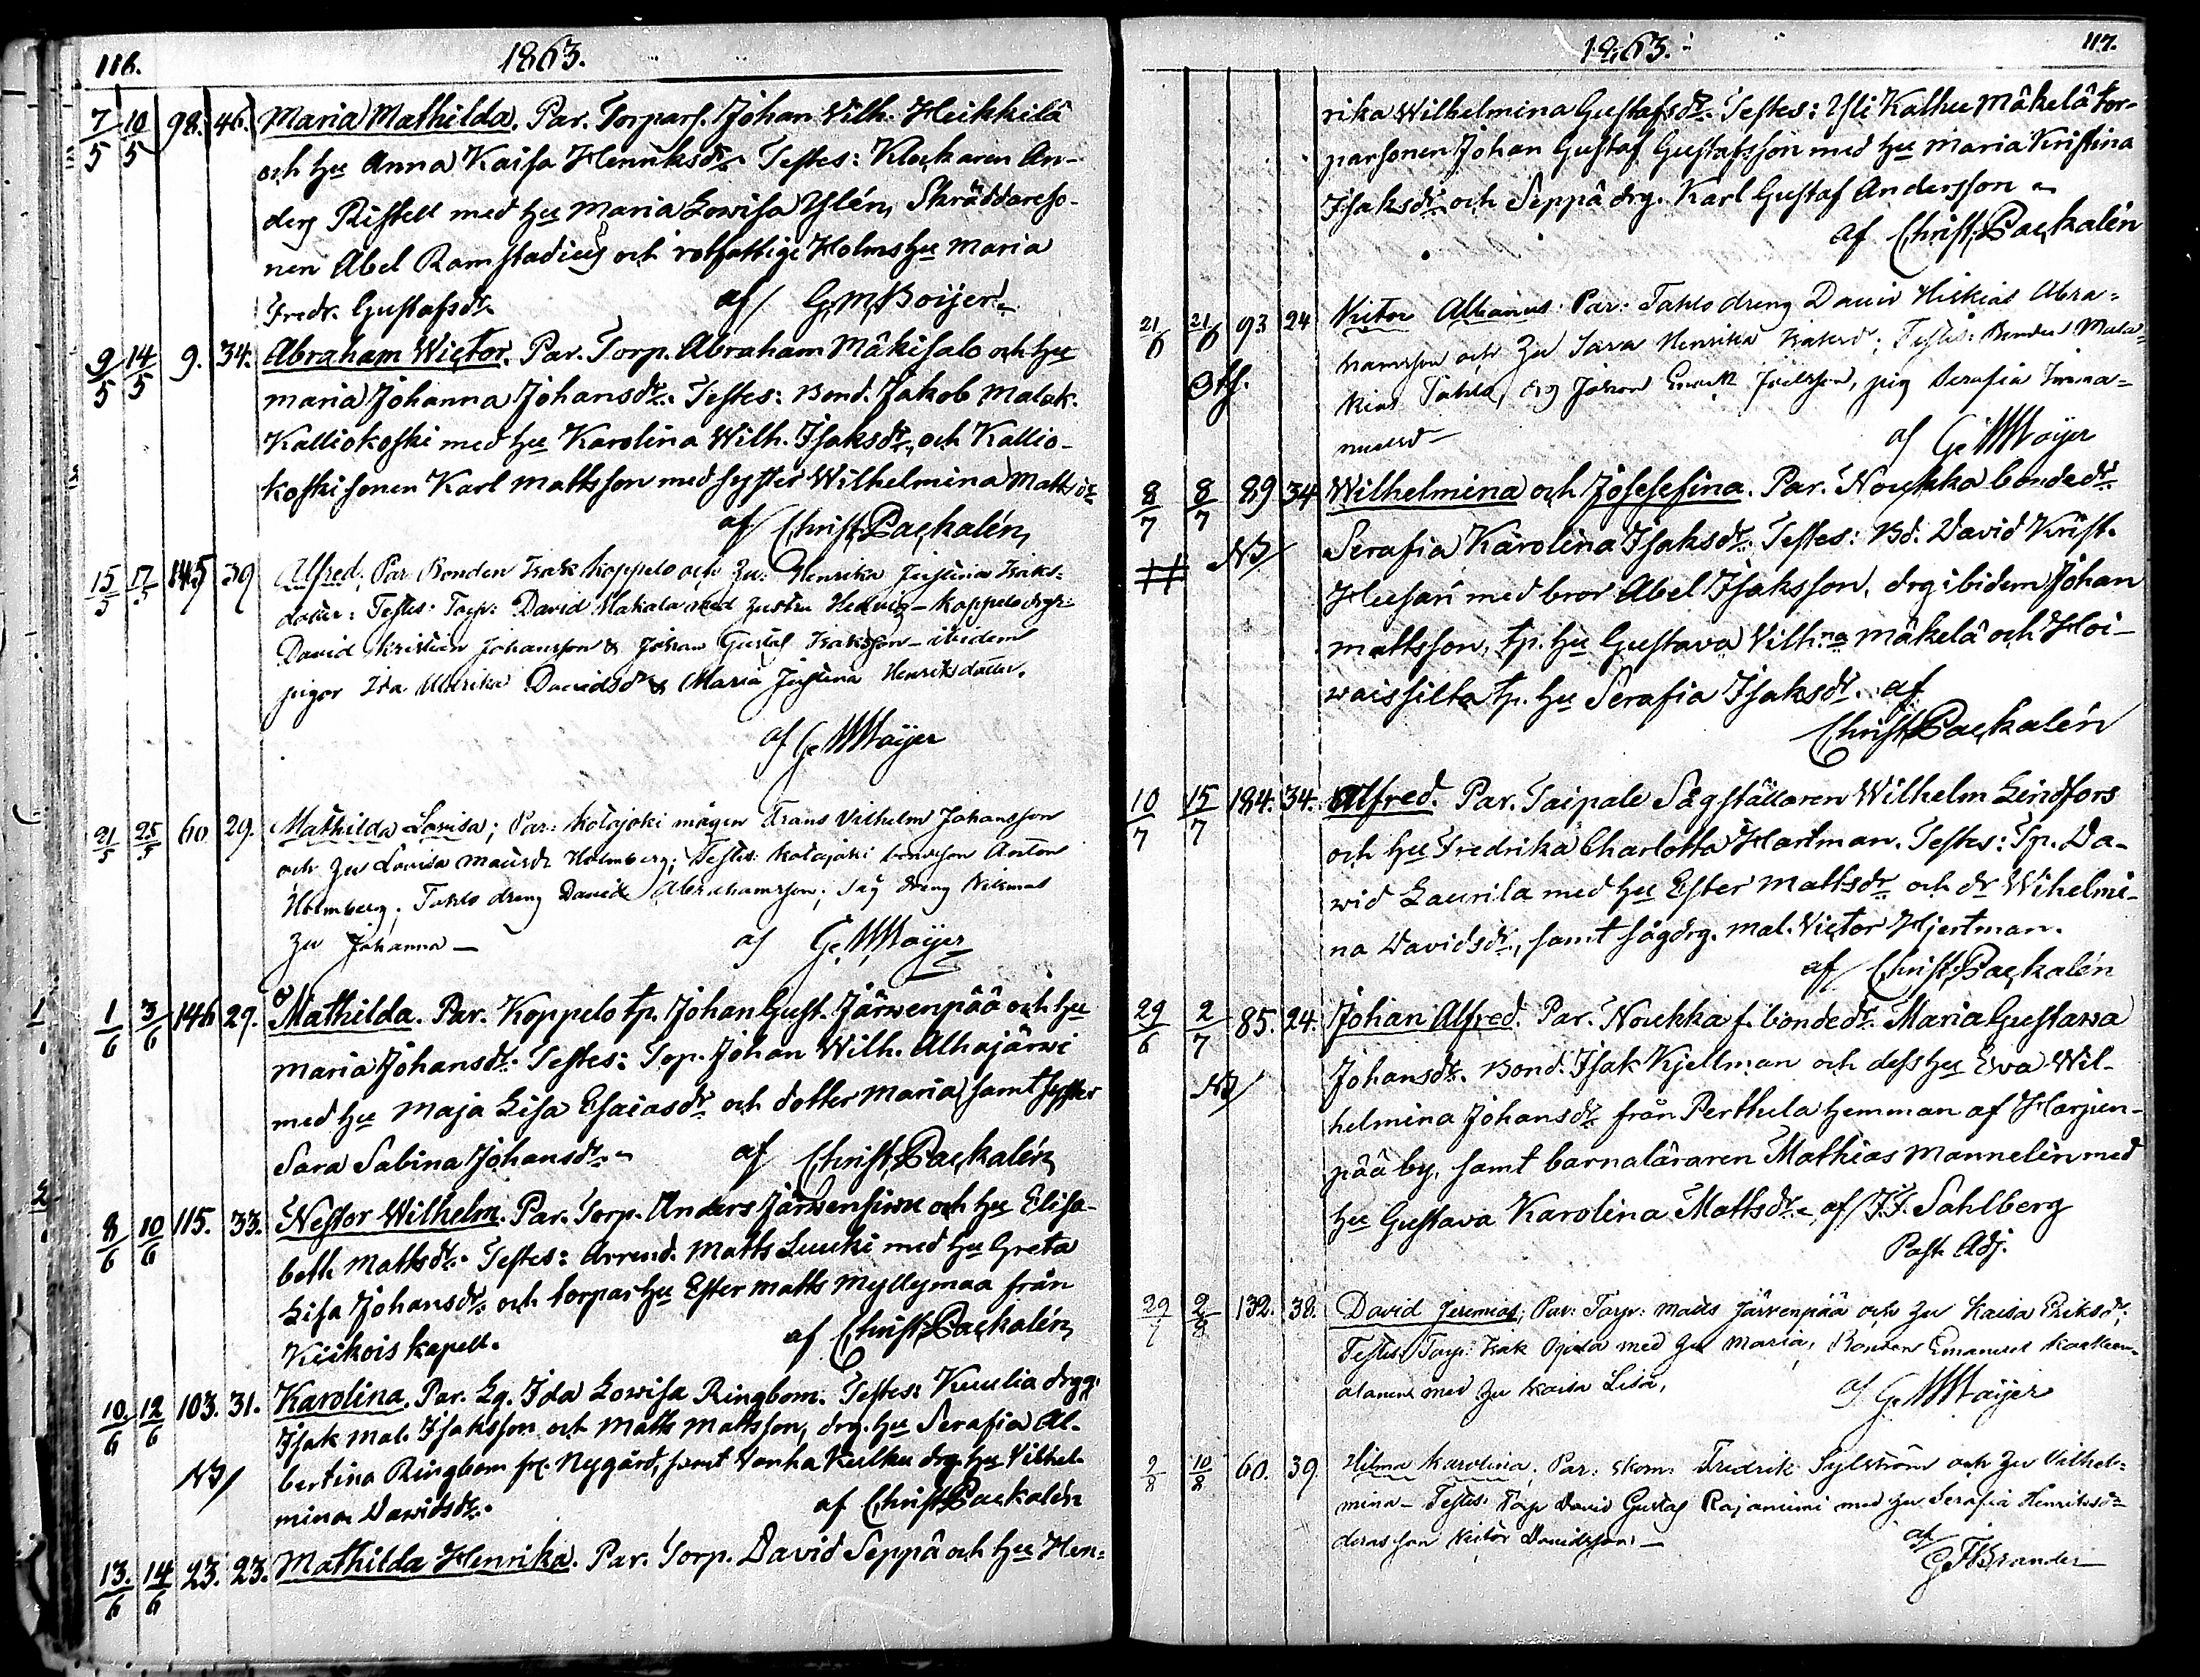 116.
1863.
7/5 10/5 98. 46. Maria Mathilda. Par. Torpars. Johan Wilh. Heikkilä
och hu Anna Kaisa Henriksdr. Testes: Klockaren An-
ders Ristell med hu Maria Lowisa Ylén, Skräddareso-
nen Abel Ramstadius och rotfattige Holms hu Maria
Fredr. Gustafsdr. af G. M. Boijer
9/5 14/5 9. 34. Abraham Wictor. Par. Torp. Abraham Mäkisalo och hu
Maria Johanna Johansdr. Testes: Bond. Jakob Malak.
Kalliokoski med hu Karolina Wilh. Isaksdr, och Kallio-
koski sonen Karl Mattsson med syster Wilhelmina Mattsdr
af Christ. Packalén
15/5 17/5 145 39 Alfred; Par: Bonden Isak Koppelo och Hu: Henrika Justina Isaks-
dotter: Testes: Torp: David Makala med Hustru Hedvig – Koppelo drgr:
David Kristian Johansson & Johan Gustaf Isaksson – ibidem
pigor Ida Ulrika Davidsdr & Maria Justina Henriksdotter.
af G. M. Boijer
21/5 25/5 60 29. Mathilda Lovisa; Par: Kotajoki mågen Frans Vilhelm Johansson
och Hu Lovisa Holmberg; Testes: Kotajoki bondeson Anton
Holmberg; Tahlo dreng David Abrahamsson; Såg dreng
Hu Johanna — af G. M. Boijer
1/6 3/6 146 29. Mathilda. Par. Koppelo tp. Johan Gust. Järwenpää och hu
Maria Johansdr. Testes: Torp. Johan Wilh. Alhajärwi
med hu Maja Lisa Esaiasdr och dotter Maria, samt syster
Sara Sabina Johansdr. af Christ. Packalén
8/6 10/6 115. 33. Nestor Wilhelm. Par. Torp. Anders Järwensiwu och hu Elisa-
beth Mattsdr. Testes: Arrend. Matts Luuki med hu Greta
Lisa Johansdr. och torpar hu Ester Matts Myllymaa från
Kiikois kapell. af Christ. Packalén
10/6 12/6 103. 31. Karolina. Par. Lg. Ida Lowisa Ringbom. Testes: Kuulia drgg.
Isak Mal. Isaksson och Matts Mattsson, drg. hu Serafia Al-
NB bertina Ringbom fr. Nygård, samt Wanha Keilku drg. hu Vilhel-
mina Davidsdr. af Christ. Packalén
13/6 14/6 23. 23. Mathilda Henrika. Par. Torp. David Seppä och hu Hen-
1863.
117.
rika Wilhelmina Gustafsdr. Testes: Yli Kathee Mäkelä tor-
parsonen Johan Gustaf Gustafsson med hu Maria Kristina
Isaksdr och Seppä drg. Karl Gustaf Andersson
af Christ. Packalén
21/6 21/6 93 24 Victor Par: Tahlo dreng David Hiskias Abra-
hamsson och Hu Sara Henrika Isaksd; Testes: Bonden Mala-
kias Tahlo, drg Johan Joelsson, pig Serafia Imma-
nuelsd — af G. M. Boijer
8/7 8/7 89 34 Wilhelmina och Josefina. Par. Noukka bondedr.
NB Serafia Karolina Isaksdr. Testes: Bd. David Krist.
Husari med bror Abel Isaksson, drg ibidem Johan
Mattsson, tp. hu Gustava Vilh:na Mäkelä och Hoi-
waissilta tp. hu Serafia Isaksdr. af
Christ Packalén
10/7 15/7 184. 34. Alfred. Par. Taipale Sågställaren Wilhelm Lindfors
och hu Fredrika Charlotta Hartman. Testes: Tp. Da-
wid Laurila med hu Ester Mattsdr och dr Wihelmi-
na Davidsdr, samt sågdrg. Mal. Victor Hjertman.
af Christ. Packalén
29/6 2/7 85. 24. Johan Alfred. Par. Noukka f. bondedr. Maria Gustawa
NB Johansdr. Bond. Isak Kjellman och dess hu Ewa Wil-
helmina Johansdr från Perthula hemman af Harjun-
pää by, samt barnaläraren Mathias Mannelin med
hu Gustava Karolina Mattsdr. af F. F. Sahlberg
Past. Adj.
29/7 2/8 132. 38. David Jeremias; Par: Torp: Matts Järvenpää och Hu Kaisa Eriksdr;
Testes: Torp: Isak Ojala med Hu Maria, Bonden Emanuel
med Hu Kaisa Lisa, af G. M. Boijer
9/8 10/8 60. 39 Hilma Karolina. Par: Skom: Fredrik Sylström och Hu Vilhel-
mina – Testes: Torp David Gustaf Rajaniemi med hu Serafia Henriksdr
deras son Victor Davidsson: —
af G. F. Brander